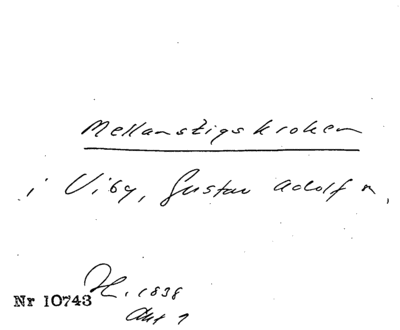 Mellanstigskroken
i Viby, Gustav Adolf n.
Nr 10743 H. 1838
Akt 7